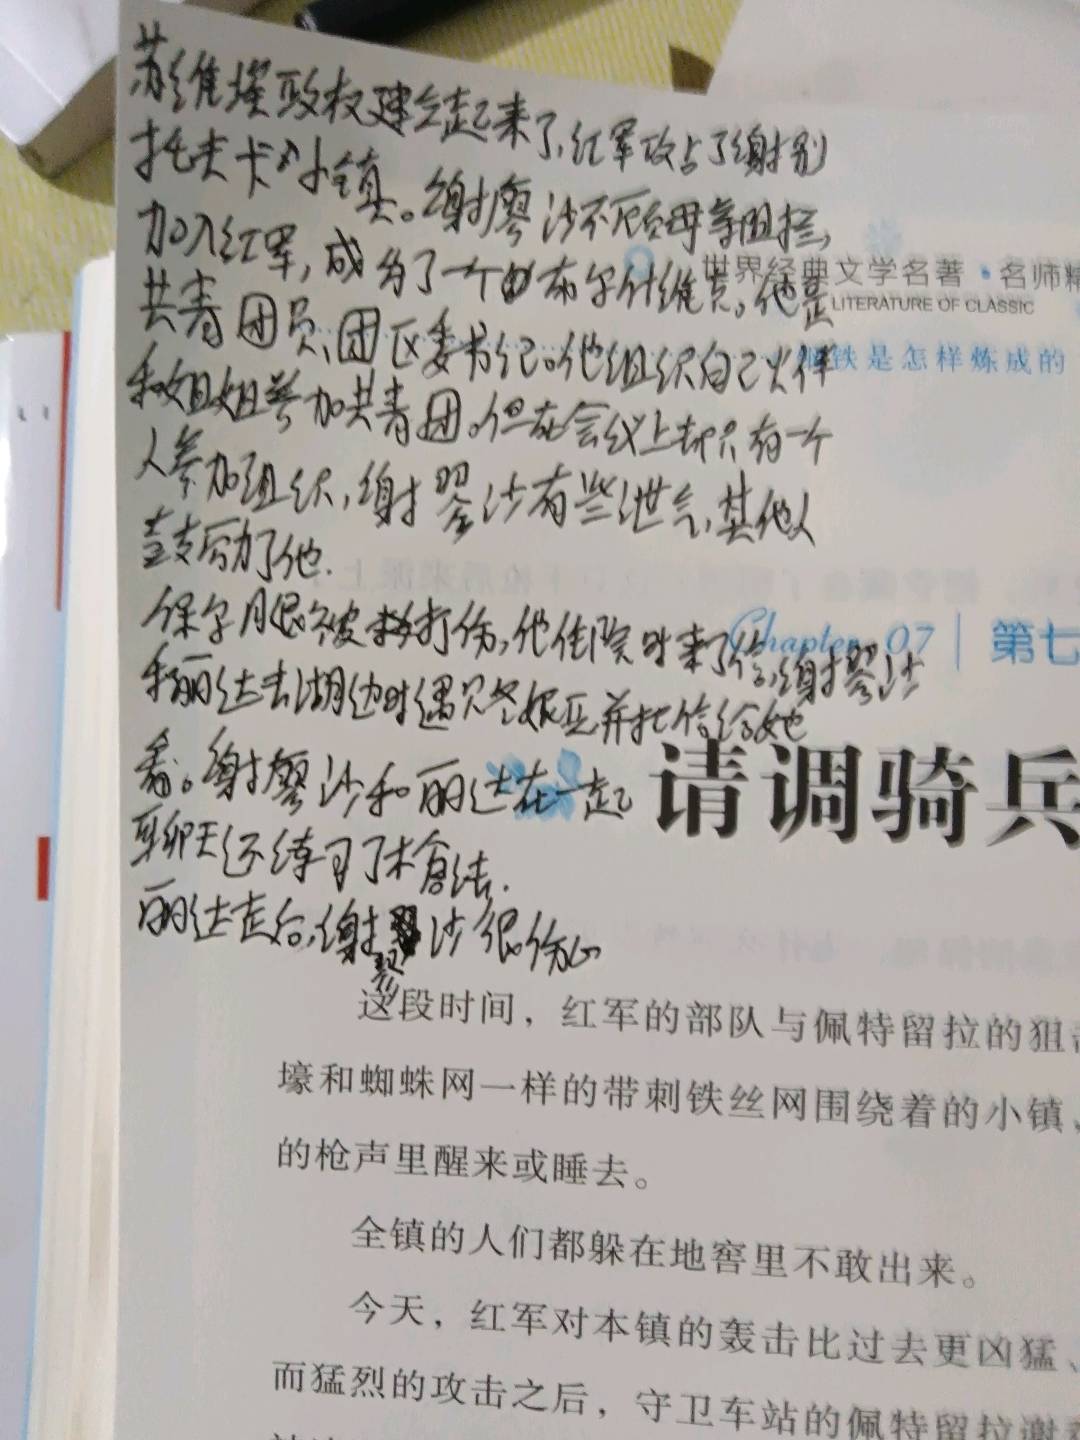 苏维埃政权建立起来了,红军攻占了谢别
托夫卡小镇。谢廖沙不顾母亲阻拦,
加入红军,成为了一个布尔什维克。他是
共青团员、团区委书记。他组织自己伙伴
和姐姐参加共青团。但在会议上却只有一个
人参加组织,谢廖沙有些泄气,其他人
鼓励了他.
保尔腿被打伤,他住院时来了信,谢廖沙
和丽达去湖边时遇见冬妮亚并把信给她
看。谢廖沙和丽达在一起
聊天还练习了木仓法.
丽达走后,谢廖沙很伤心
世界经典文学名著·名师精
LITERATURE OF CLASSIC
铁是怎样炼成的
Chapter 07 | 第七
请调骑兵
这段时间,红军的部队与佩特留拉的狙击
壕和蜘蛛网一样的带刺铁丝网围绕着的小镇、
的枪声里醒来或睡去。
全镇的人们都躲在地窖里不敢出来。
今天,红军对本镇的轰击比过去更凶猛、
而猛烈的攻击之后,守卫车站的佩特留拉谢